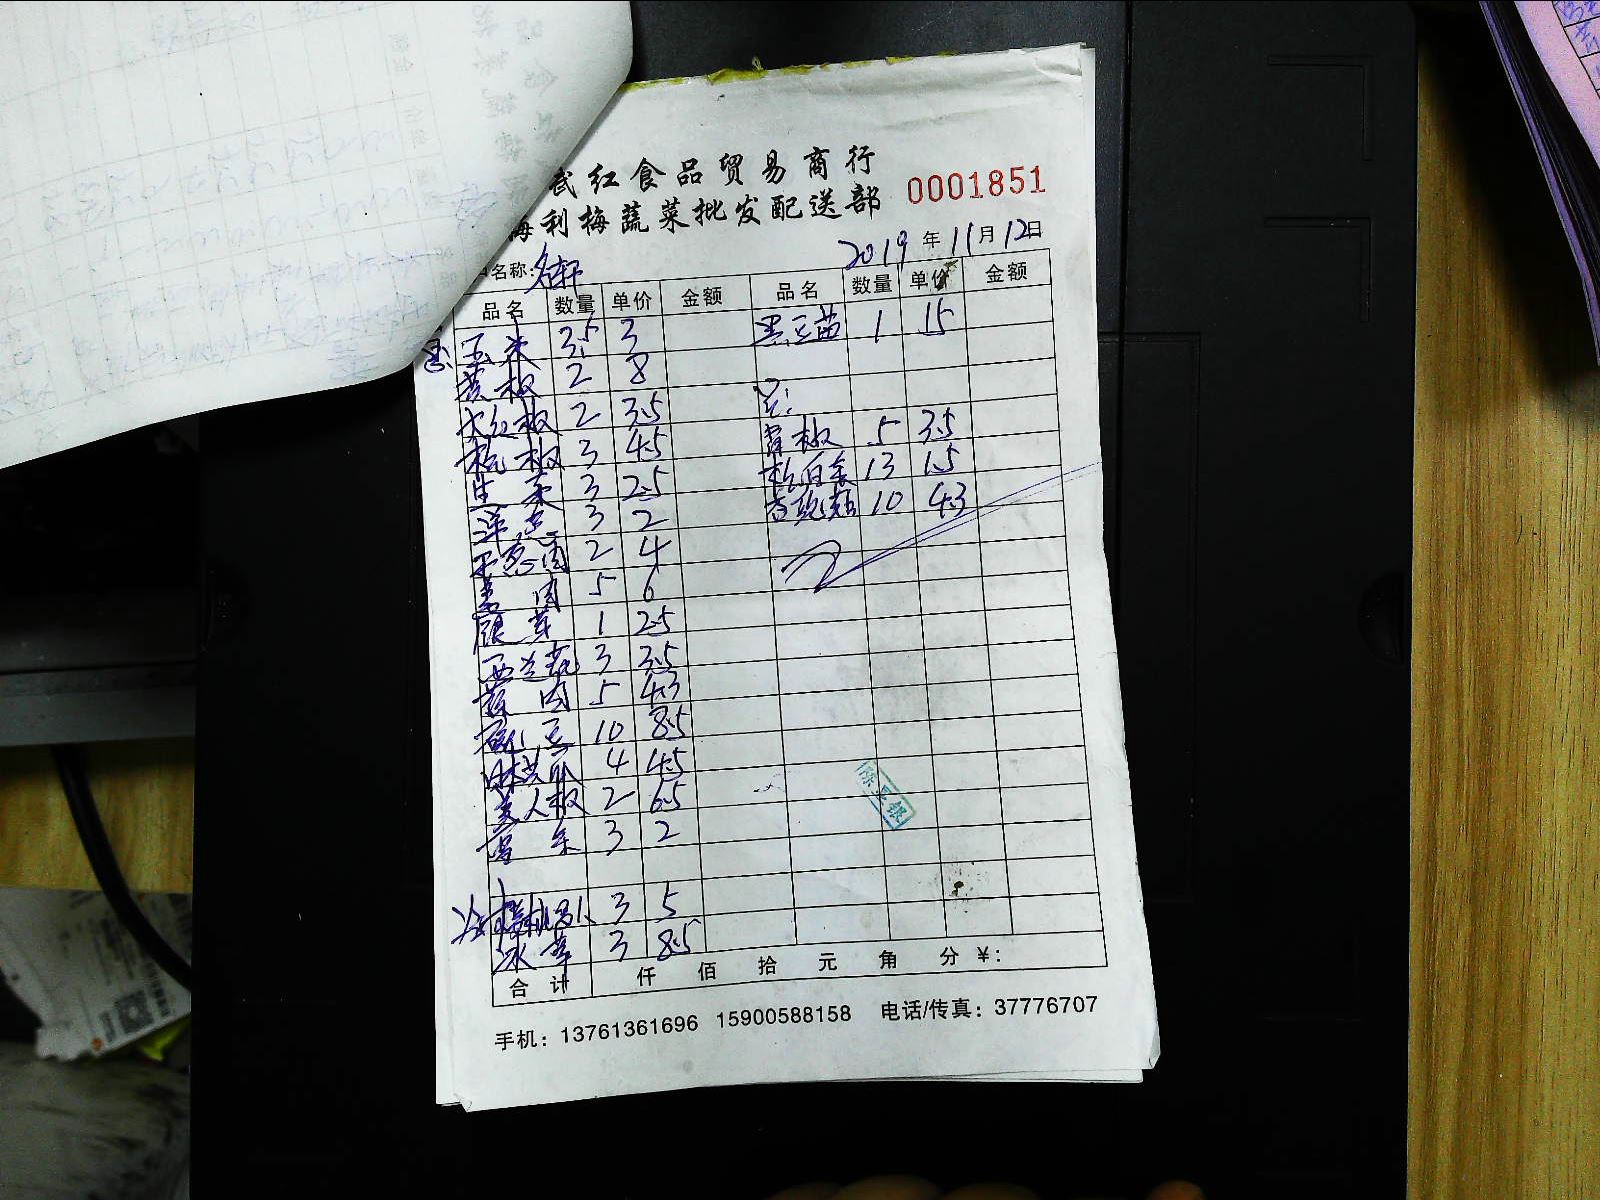 武红食品贸易商行
海利梅蔬菜批发配送部 0001851
2019年11月12日
户名称:名轩
品名 数量 单价 金额 品名 数量 单价 金额
玉米 3.5 3 黑豆苗 1 15
黄椒 2 8
大红椒 2 3.5 另:
杭椒 3 4.5 青椒 5 3.5
生菜 3 2.5 杭白菜 13 1.5
洋葱 3 2 杏鲍菇 10 4.3
京葱肉 2 4
姜肉 5 6
银芽 1 2.5
西兰花 3 3.5
蒜肉 5 4.3
豆 10 8.5
4 4.5
美人椒 2 6.5
3 2
3 5
冰草 3 8.5
合计 仟 佰 拾 元 角 分 ¥:
手机:13761361696 15900588158 电话/传真:37776707